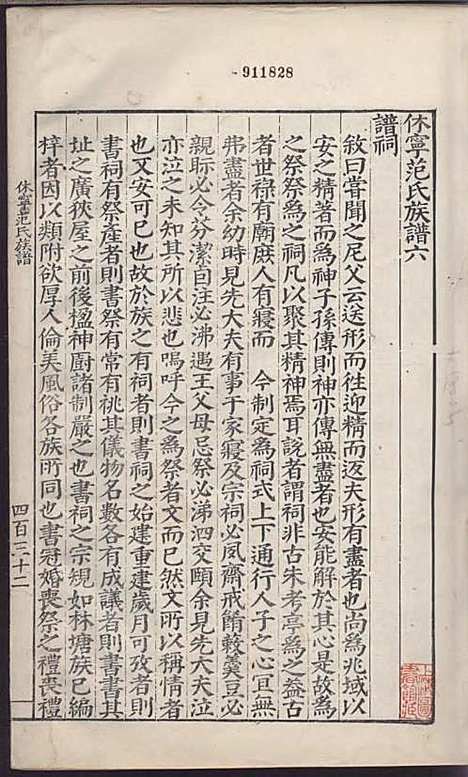 911828
休寧范氏族譜六
譜祠
敘曰嘗聞之尼父云送形而往迎精而返夫形有盡者也尚為兆域以
安之精著而為神子孫傳則神亦傳無盡者也安能解於其心是故為
之祭祭為之祠凡以聚其精神焉耳說者謂祠非古朱考亭為之益古
者世祿有廟庶人有寢而 今制定為祠式上下通行人子之心宜無
弗盡者余幼時見先大夫有事于家寢及宗祠必夙齋戒餚蔌羹豆必
親眎必令芬潔自注必沸遇王父母忌祭必涕泗交頤余見先大夫泣
亦泣之未知其所以悲也嗚呼今之為祭者文而已然文所以稱情者
也又安可已也故於族之有祠者則書祠之始建重建歲月可攷者則
書祠有祭產者則書祭有常有祧其儀物名數各有成議者則書書其
址之廣狹屋之前後楹神廚諸制嚴之也書祠之宗規如林塘族已編
梓者因以類附欲厚人倫美風俗各族所同也書冠婚喪祭之禮喪禮
休寧范氏族譜
四百三十二